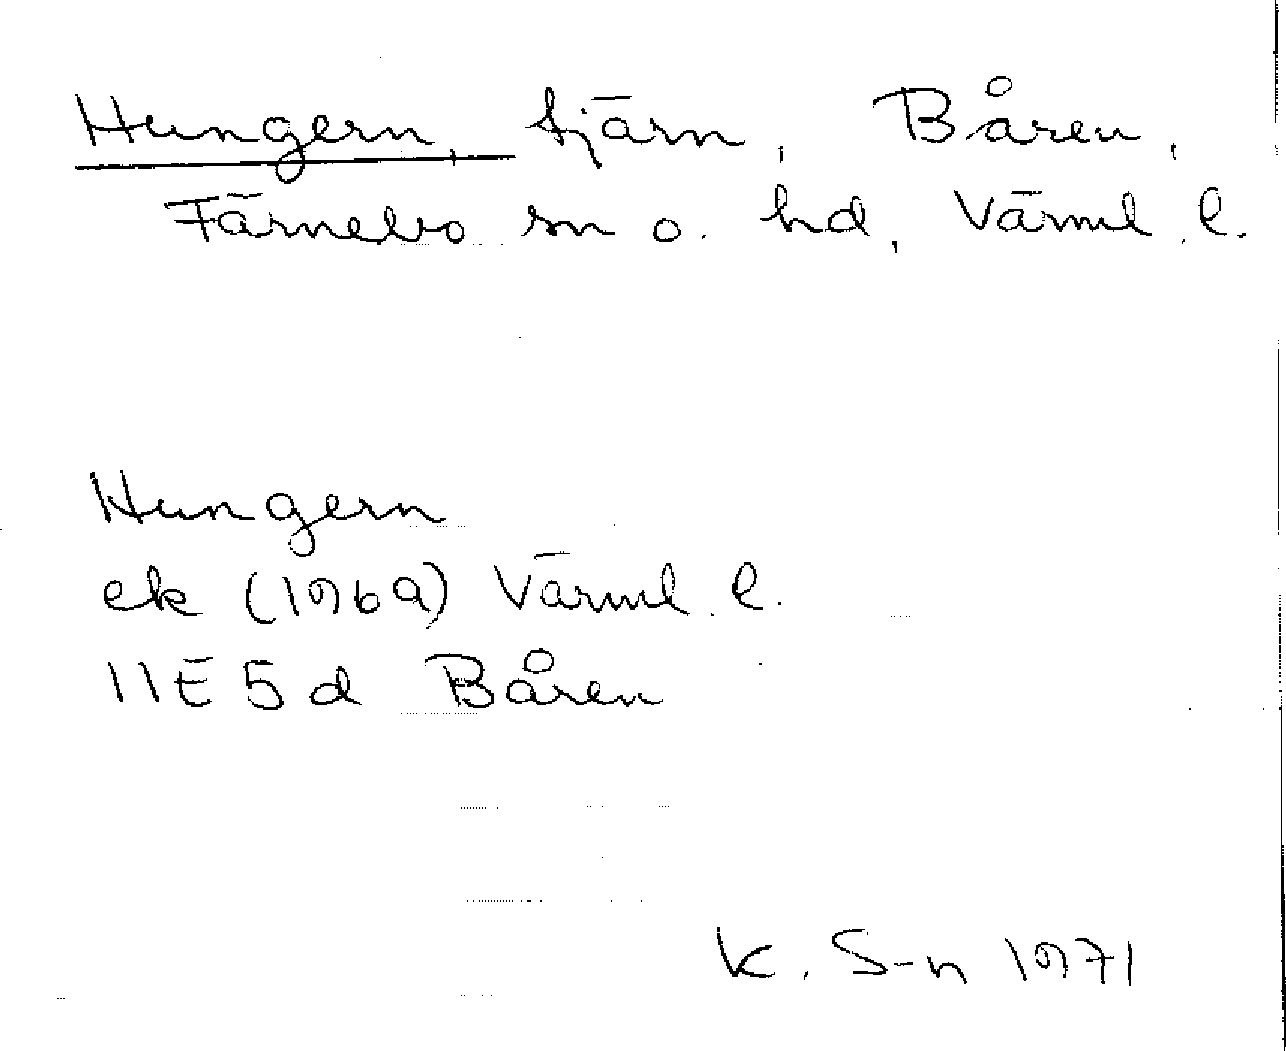 Hungern, tjärn, Båren,
Färnebo sn o. hd, Värml. l.
Hungern
ek (1969) Värml. l.
11E 5d Båren
K. S-n 1971